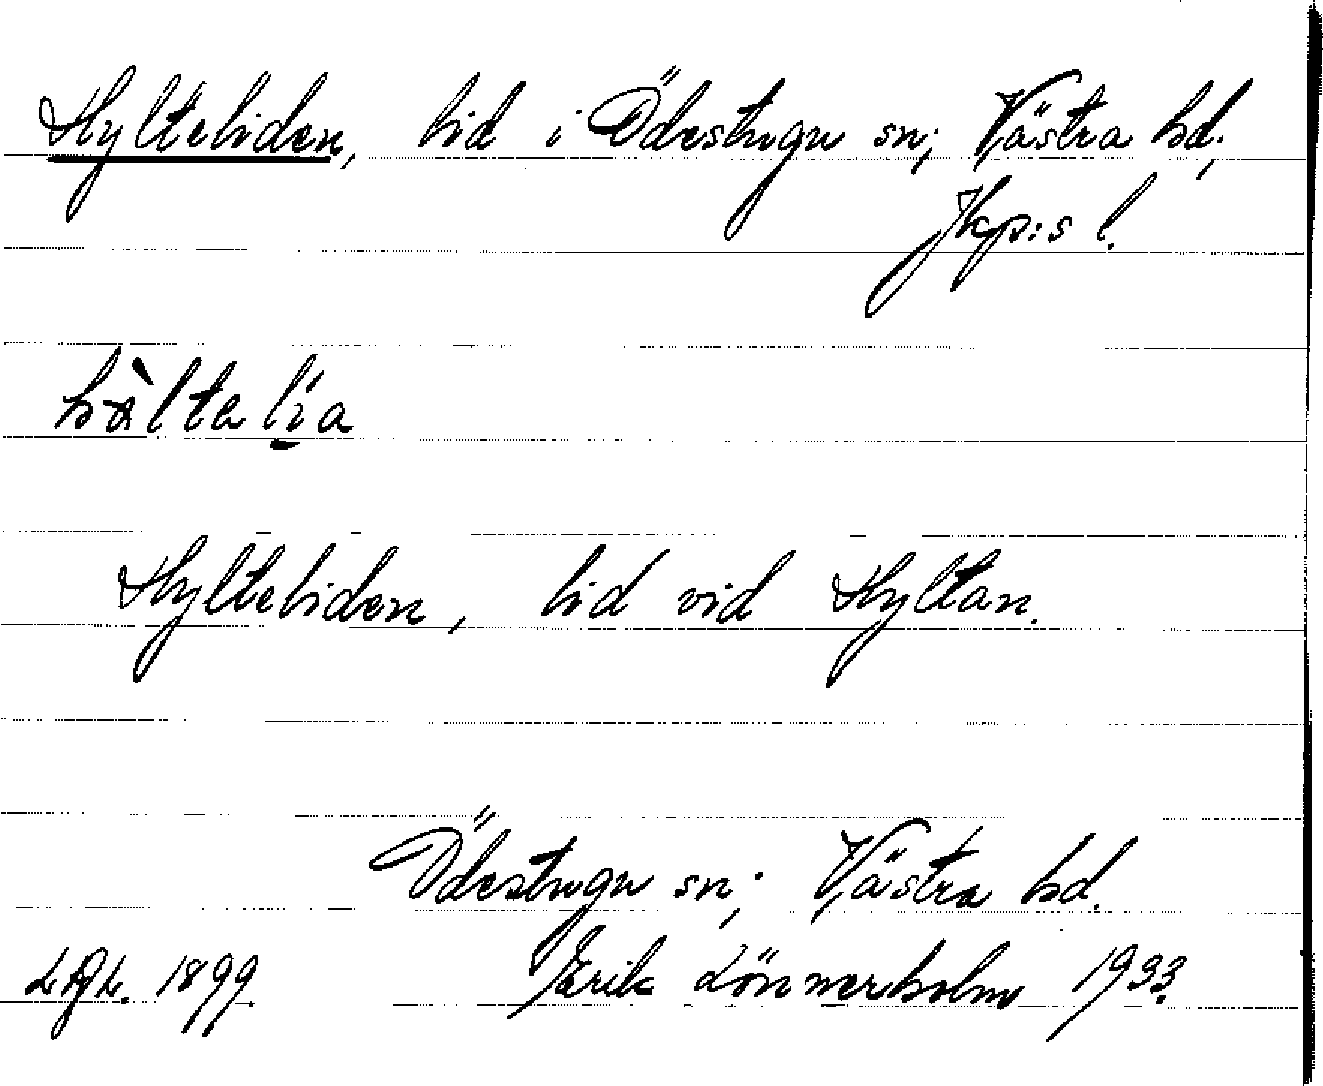 Hylteliden, lid i Ödestugu sn; Västra hd;
Jkp:s l.
Hylteliden, lid vid Hyltan.
Ödestugu sn; Västra hd.
1899. Erik Lönnerholm 1933.